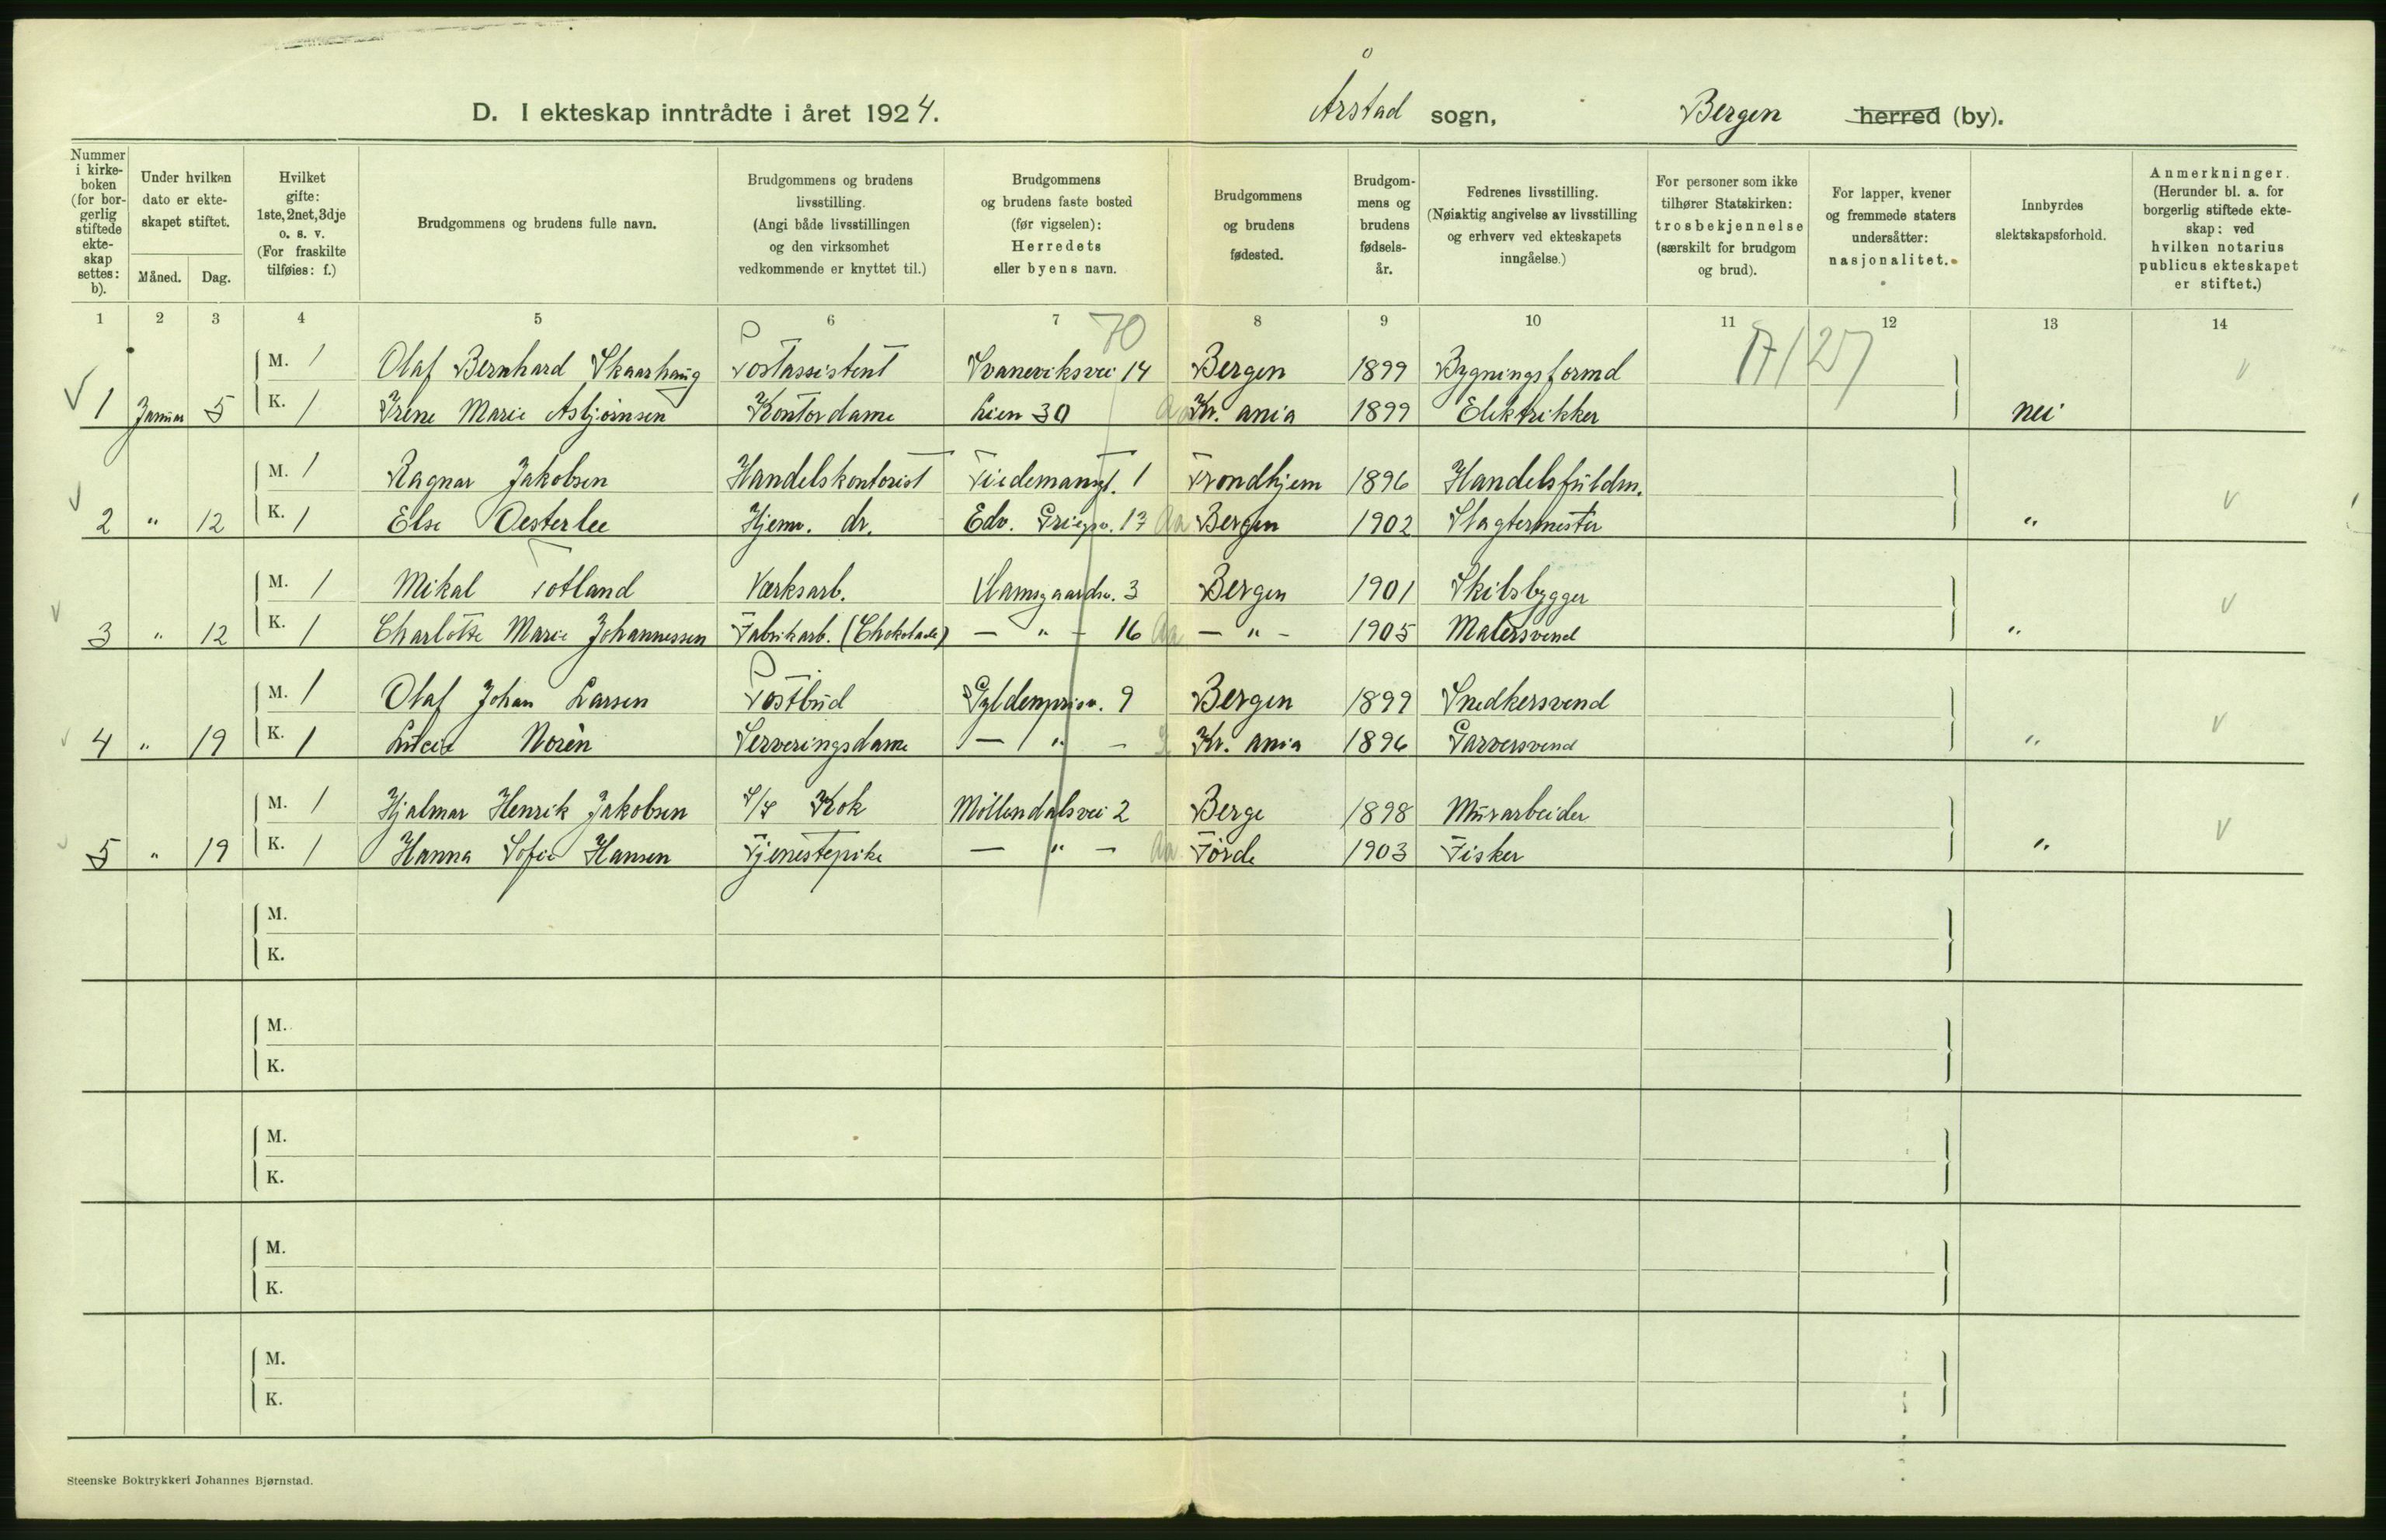 D. I ekteskap inntrådte i året 1924. Årstad sogn, Bergen herred (by).
Nummer i kirke-boken (for bor-gerlig stiftede ekte-skap settes: b).
Under hvilken dato er ekte-skapet stiftet.
Måned. Dag.
Hvilket gifte: 1ste, 2net, 3dje o. s. v. (For fraskilte tilføies: f.)
Brudgommens og brudens fulle navn.
Brudgommens og brudens livsstilling. (Angi både livsstillingen og den virksomhet vedkommende er knyttet til.)
Brudgommens og brudens faste bosted (før vigselen): Herredets eller byens navn.
Brudgommens og brudens fødested.
Brudgom-mens og brudens fødsels-år.
Fedrenes livsstilling. (Nøiaktig angivelse av livsstilling og erhverv ved ekteskapets inngåelse.)
For personer som ikke tilhører Statskirken: trosbekjennelse (særskilt for brudgom og brud).
For lapper, kvener og fremmede staters undersåtter: nasjonalitet.
Innbyrdes slektskapsforhold.
Anmerkninger. (Herunder bl. a. for borgerlig stiftede ekte-skap: ved hvilken notarius publicus ekteskapet er stiftet.)
1 2 3 4 5 6 7 8 9 10 11 12 13 14
70
M. 1 Olaf Bernhard Skaarhaug Postassistent Svaneviksvei 14 Bergen 1899 Bygningsformd
1 Januar 5 K. 1 Irene Marie Asbjørnsen Kontordame Lien 30 Aa Kr.ania 1899 Elektrikker nei
M. 1 Ragnar Jakobsen Handelskontorist Tiedemansgt. 1 Trondhjem 1896 Handelsfuldm.
2 " 12 K. 1 Else Oesterlee Hjemv. dr. Edv. Griegsv. 13 Aa Bergen 1902 Slagtermester "
M. 1 Mikal Totland Værksarb. 3 Bergen 1901 Skibsbygger
3 " 12 K. 1 Charlotte Marie Johannessen Fabrikarb. (Chokolade) — " — 16 Aa — " — 1905 Malersvend "
M. 1 Olaf Johan Larsen Postbud Gyldenprisv. 9 Bergen 1899 Snedkersvend
4 " 19 K. 1 Norèn Serveringsdame — " — Kr.ania 1896 Garversvend "
M. 1 Hjalmar Henrik Jakobsen S/S Kok Møllendalsvei 2 Berge 1898 Murarbeider
5 " 19 K. 1 Hanna Sofie Hansen Tjenestepike — " — Aa Førde 1903 Fisker "
M.
K.
M.
K.
M.
K.
M.
K.
M.
K.
Steenske Boktrykkeri Johannes Bjørnstad.